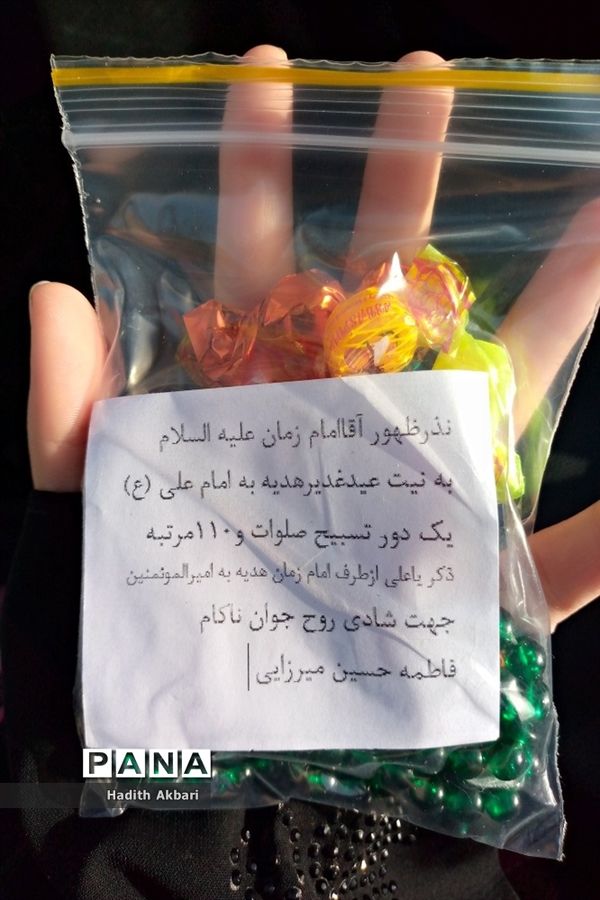 نذرظهور آقاامام زمان علیه السلام
به نیت عیدغدیرهدیه به امام علی (ع)
یک دور تسبیح صلوات و۱۱۰مرتبه
ذکر یاعلی ازطرف امام زمان هدیه به امیرالموئمنین
جهت شادی روح جوان ناکام
فاطمه حسین میرزایی
PANA
Hadith Akbari